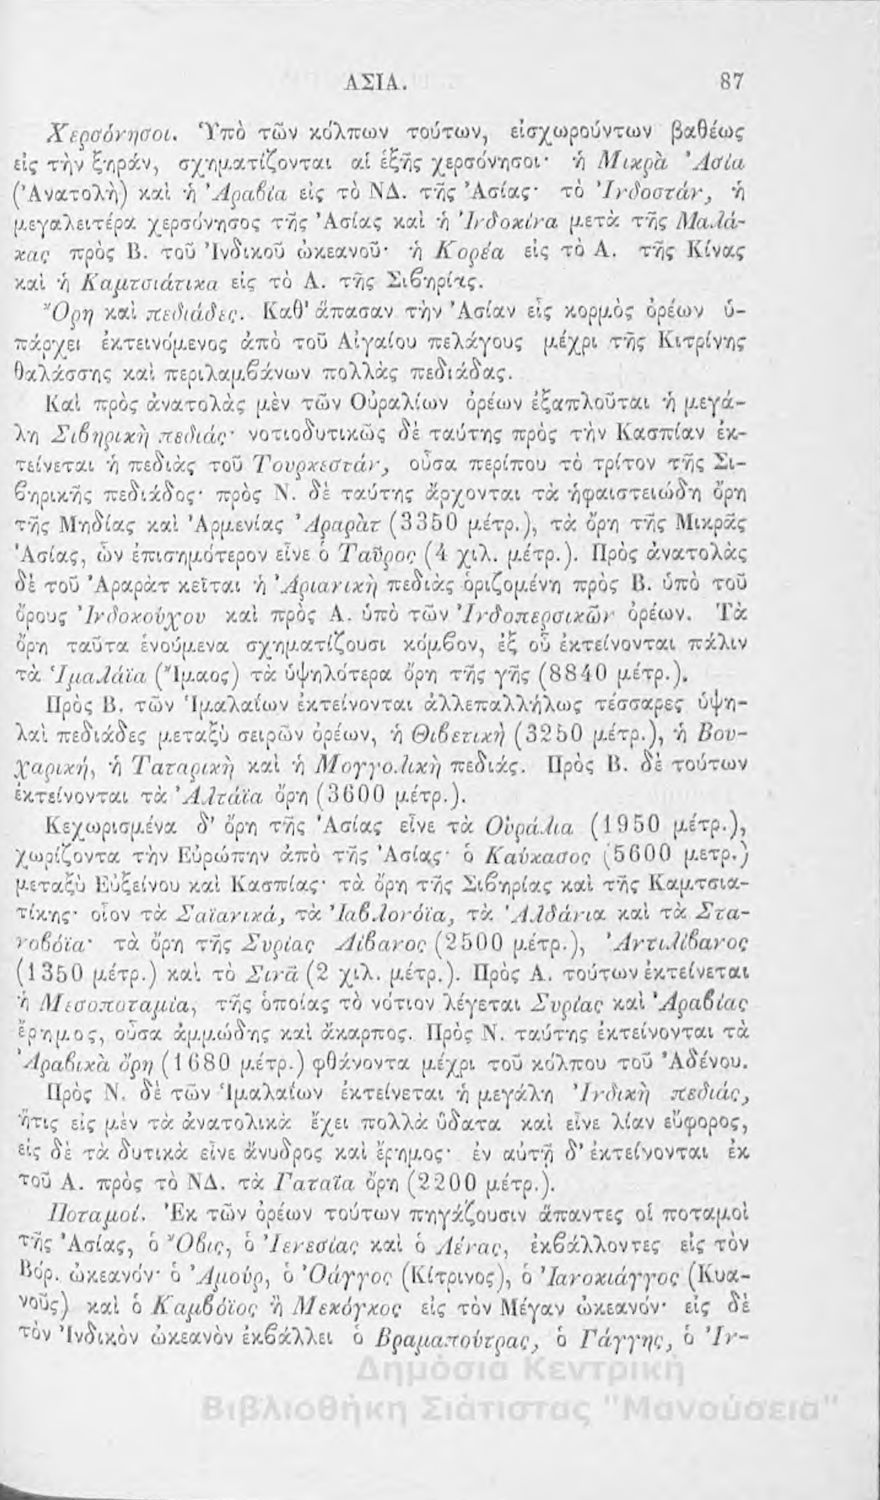 ΑΣΙΑ. 87
Χερσόνησοι. Ὑπὸ τῶν κόλπων τούτων, εἰσχωρούντων βαθέως
εἰς τὴν ξηράν, σχηματίζονται αἱ ἑξῆς χερσόνησοι· ἡ Μικρὰ Ἀσία
(Ἀνατολὴ) καὶ ἡ Ἀραβία εἰς τὸ ΝΔ. τῆς Ἀσίας· τὸ Ἰνδοστάν, ἡ
μεγαλειτέρα χερσόνησος τῆς Ἀσίας καὶ ἡ Ἰνδοκίνα μετὰ τῆς Μαλά-
κας πρὸς Β. τοῦ Ἰνδικοῦ ὠκεανοῦ· ἡ Κορέα εἰς τὸ Α. τῆς Κίνας
καὶ ἡ Καμτσιάτικα εἰς τὸ Α. τῆς Σιβηρίας.
Ὄρη καὶ πεδιάδες. Καθ' ἅπασαν τὴν Ἀσίαν εἷς κορμὸς ὀρέων ὑ-
πάρχει ἐκτεινόμενος ἀπὸ τοῦ Αἰγαίου πελάγους μέχρι τῆς Κιτρίνης
θαλάσσης καὶ περιλαμβάνων πολλὰς πεδιάδας.
Καὶ πρὸς ἀνατολὰς μὲν τῶν Οὐραλίων ὀρέων ἐξαπλοῦται ἡ μεγά-
λη Σιβηρικὴ πεδιάς· νοτιοδυτικῶς δὲ ταύτης πρὸς τὴν Κασπίαν ἐκ-
τείνεται ἡ πεδιὰς τοῦ Τουρκεστάν, οὖσα περίπου τὸ τρίτον τῆς Σι-
βηρικῆς πεδιάδος· πρὸς Ν. δὲ ταύτης ἄρχονται τὰ ἡφαιστειώδη ὄρη
τῆς Μηδίας καὶ Ἀρμενίας Ἀραρὰτ (3350 μέτρ.), τὰ ὄρη τῆς Μικρᾶς
Ἀσίας, ὧν ἐπισημότερον εἶνε ὁ Ταῦρος (4 χιλ. μέτρ.). Πρὸς ἀνατολὰς
δὲ τοῦ Ἀραρὰτ κεῖται ἡ Ἀριανικὴ πεδιὰς ὁριζομένη πρὸς Β. ὑπὸ τοῦ
ὄρους Ἰνδοκούχου καὶ πρὸς Α. ὑπὸ τῶν Ἰνδοπερσικῶν ὀρέων. Τὰ
ὄρη ταῦτα ἑνούμενα σχηματίζουσι κόμβον, ἐξ οὗ ἐκτείνονται πάλιν
τὰ Ἱμαλάϊα (Ἴμαος) τὰ ὑψηλότερα ὄρη τῆς γῆς (8840 μέτρ.).
Πρὸς Β. τῶν Ἱμαλαΐων ἐκτείνονται ἀλλεπαλλήλως τέσσαρες ὑψη-
λαὶ πεδιάδες μεταξὺ σειρῶν ὀρέων, ἡ Θιβετικὴ (3250 μέτρ.), ἡ Βου-
χαρική, ἡ Ταταρικὴ καὶ ἡ Μογγολικὴ πεδιάς. Πρὸς Β. δὲ τούτων
ἐκτείνονται τὰ Ἀλτάϊα ὄρη (3600 μέτρ.).
Κεχωρισμένα δ' ὄρη τῆς Ἀσίας εἶνε τὰ Οὐράλια (1950 μέτρ.),
χωρίζοντα τὴν Εὐρώπην ἀπὸ τῆς Ἀσίας· ὁ Καύκασος (5600 μετρ.)
μεταξὺ Εὐξείνου καὶ Κασπίας· τὰ ὄρη τῆς Σιβηρίας καὶ τῆς Καμτσια-
τίκης· οἷον τὰ Σαϊανικά, τὰ Ἰαβλονόϊα, τὰ Ἀλδάνια καὶ τὰ Στα-
νοβόϊα· τὰ ὄρη τῆς Συρίας Λίβανος (2500 μέτρ.), Ἀντιλίβανος
(1350 μέτρ.) καὶ τὸ Σινᾶ (2 χιλ. μέτρ.). Πρὸς Α. τούτων ἐκτείνεται
ἡ Μεσοποταμία, τῆς ὁποίας τὸ νότιον λέγεται Συρίας καὶ Ἀραβίας
ἔρημος, οὖσα ἀμμώδης καὶ ἄκαρπος. Πρὸς Ν. ταύτης ἐκτείνονται τὰ
Ἀραβικὰ ὄρη (1680 μέτρ.) φθάνοντα μέχρι τοῦ κόλπου τοῦ Ἀδένου.
Πρὸς Ν. δὲ τῶν Ἱμαλαΐων ἐκτείνεται ἡ μεγάλη Ἰνδικὴ πεδιάς,
ἥτις εἰς μὲν τὰ ἀνατολικὰ ἔχει πολλὰ ὕδατα καὶ εἶνε λίαν εὔφορος,
εἰς δὲ τὰ δυτικὰ εἶνε ἄνυδρος καὶ ἔρημος· ἐν αὐτῇ δ' ἐκτείνονται ἐκ
τοῦ Α. πρὸς τὸ ΝΔ. τὰ Γαταῖα ὄρη (2200 μέτρ.).
Ποταμοί. Ἐκ τῶν ὀρέων τούτων πηγάζουσιν ἅπαντες οἱ ποταμοὶ
τῆς Ἀσίας, ὁ Ὄβις, ὁ Ἰενεσίας καὶ ὁ Λένας, ἐκβάλλοντες εἰς τὸν
Βόρ. ὠκεανόν· ὁ Ἀμούρ, ὁ Ὁάγγος (Κίτρινος), ὁ Ἰανοκιάγγος (Κυα-
νοῦς) καὶ ὁ Καμβόϊος ἢ Μεκόγκος εἰς τὸν Μέγαν ὠκεανόν· εἰς δὲ
τὸν Ἰνδικὸν ὠκεανὸν ἐκβάλλει ὁ Βραμαπούτρας, ὁ Γάγγης, ὁ Ἰν-
Δημόσια Κεντρική
Βιβλιοθήκη Σιάτιστας "Μανούσεια"